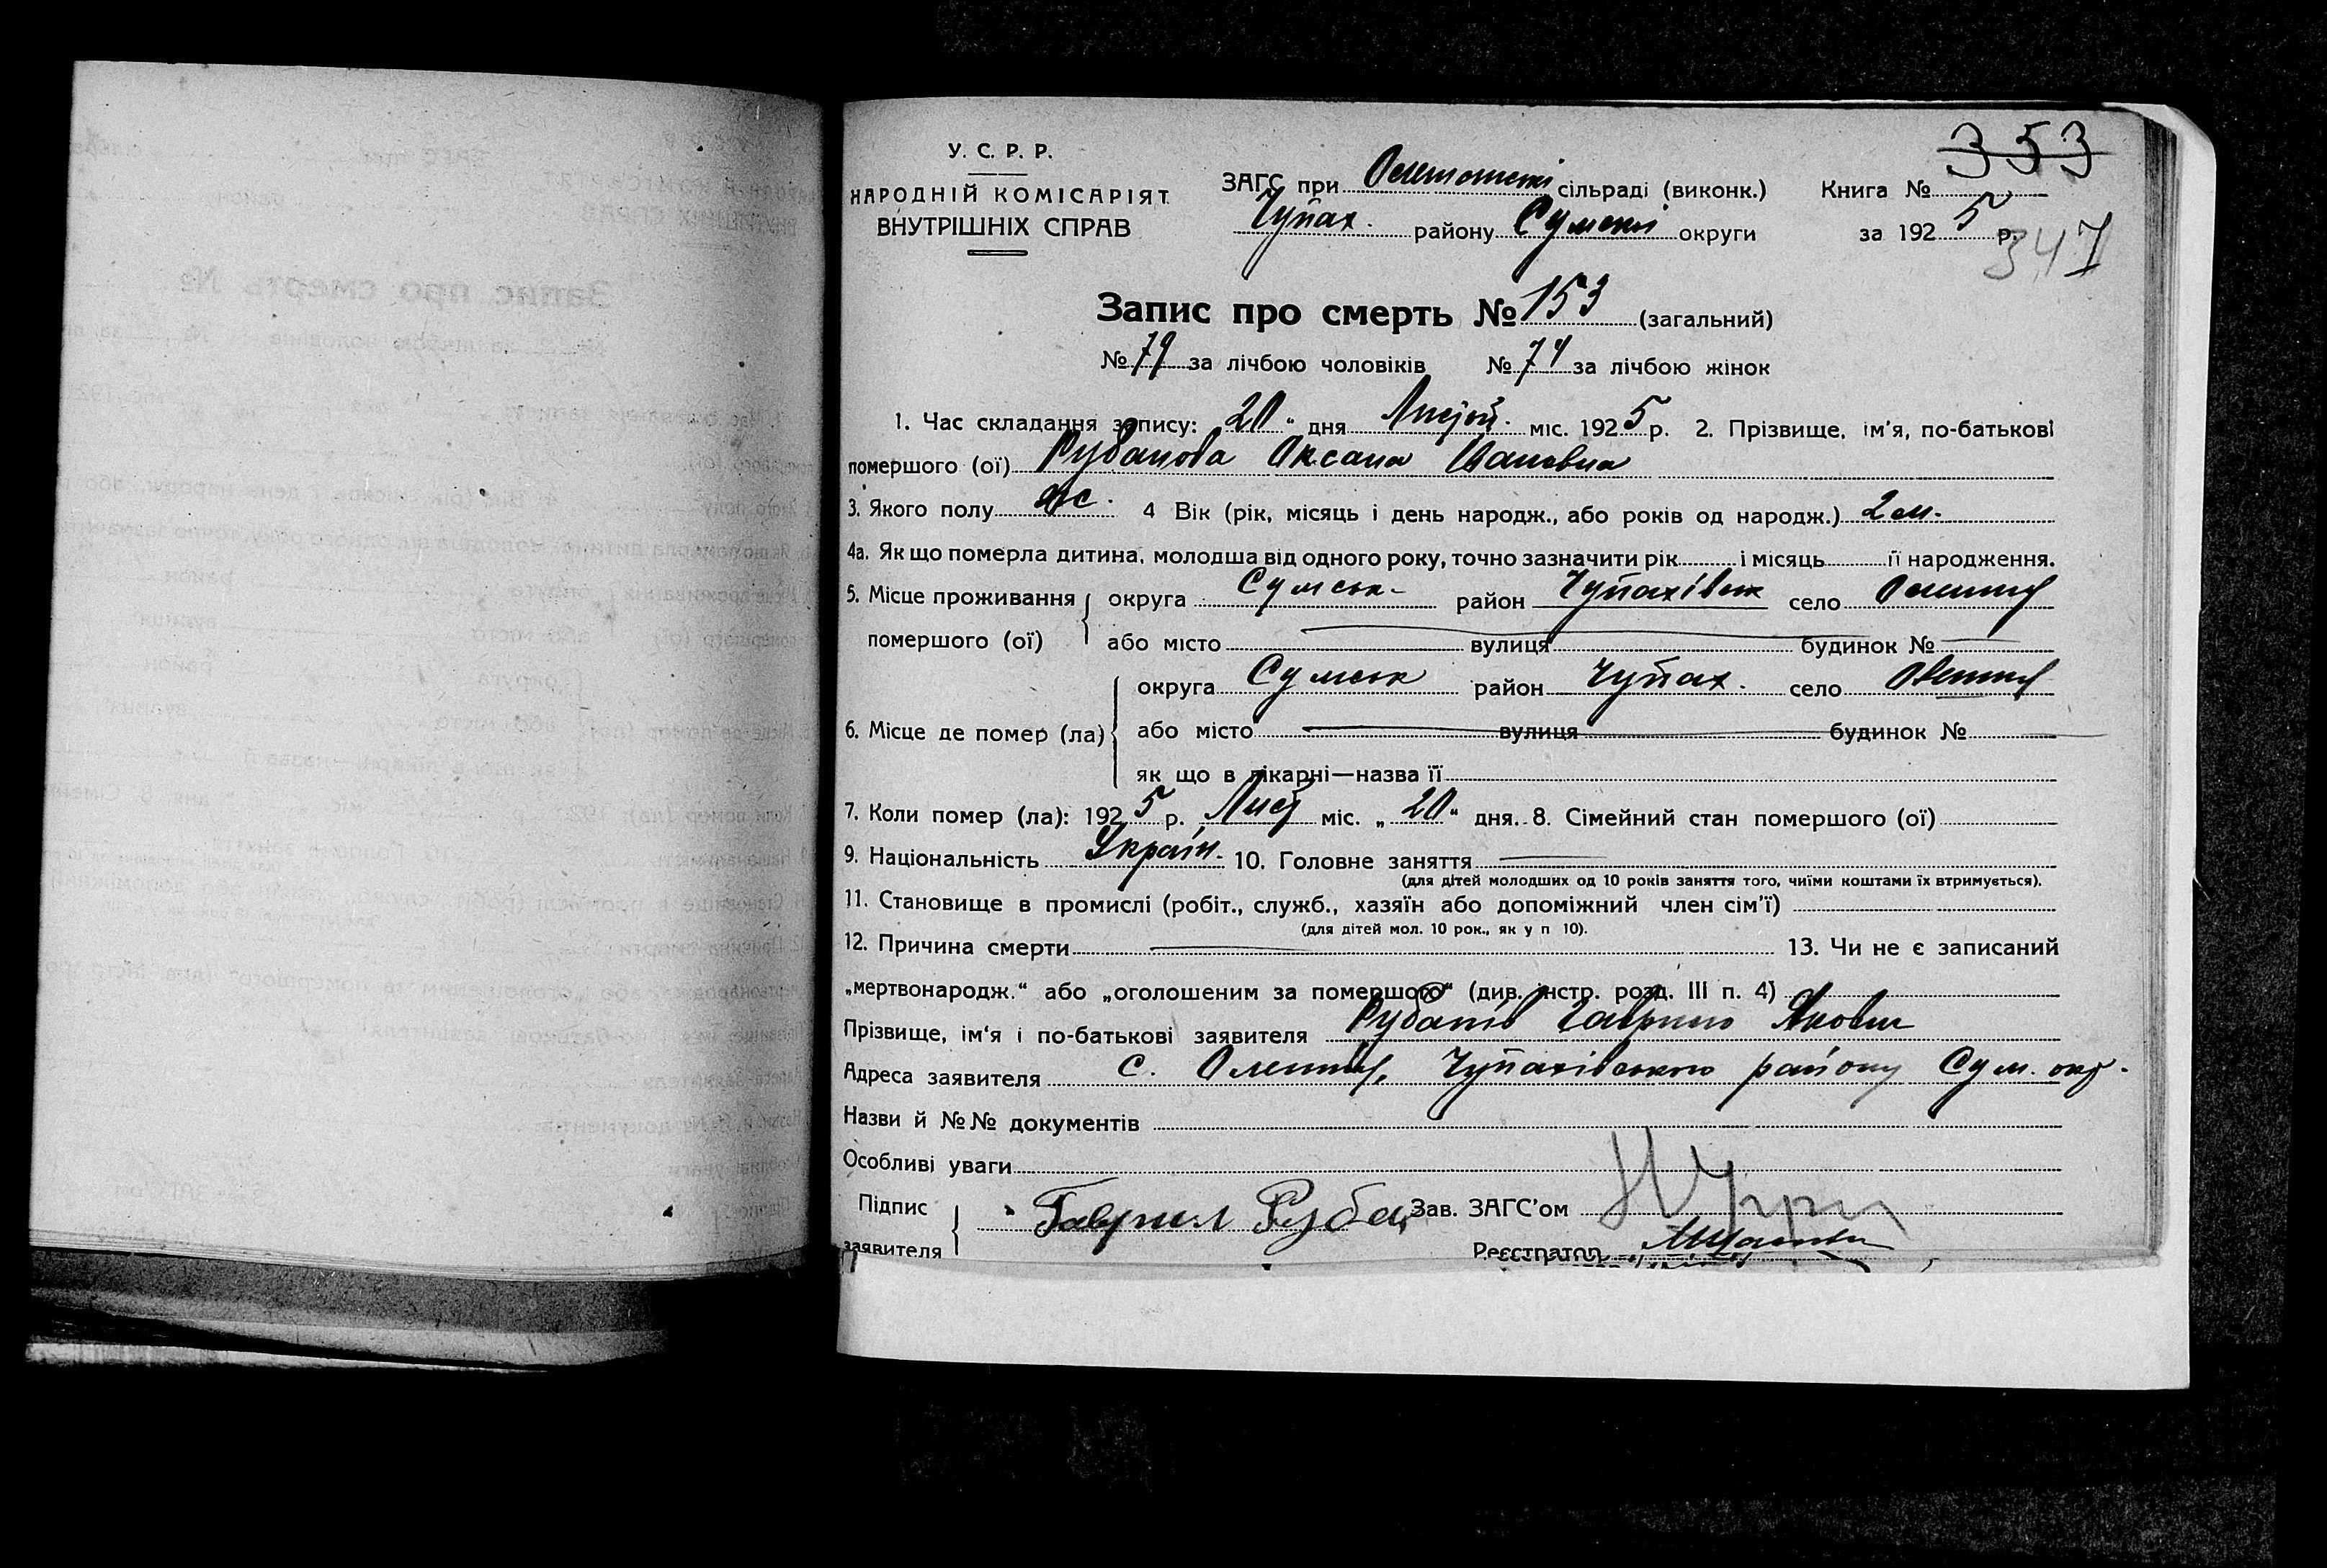 353
У. С. Р. Р.
НАРОДНІЙ КОМІСАРІЯТ
ВНУТРІШНІХ СПРАВ
ЗАГС при сільраді (виконк.) Книга №
Чупах. району Сумськ округи за 1925 р.
347
Запис про смерть № 153 (загальний)
№ 79 за лічбою чоловіків № 74 за лічбою жінок
1. Час складання запису: 20 " дня міс. 1925 р. 2. Прізвище, ім'я, по-батькові
помершого (ої) Рубанова Оксана Івановна
3. Якого полу ж. 4 Вік (рік, місяць і день народж., або років од народж.) 2 м.
4а. Як що померла дитина, молодша від одного року, точно зазначити рік і місяць її народження.
5. Місце проживання помершого (ої) округа Сумськ- район Чупахівськ село
або місто вулиця будинок №
6. Місце де помер (ла) округа Сумськ район Чупах. село
або місто вулиця будинок №
як що в лікарні—назва її
7. Коли помер (ла): 1925 р. Лист міс. „ 20 " дня. 8. Сімейний стан помершого (ої)
9. Національність Україн. 10. Головне заняття
(для дітей молодших од 10 років заняття того, чиїми коштами їх втримується).
11. Становище в промислі (робіт., служб., хазяїн або допоміжний член сім'ї)
(для дітей мол. 10 рок., як у п 10).
12. Причина смерти 13. Чи не є записаний
„мертвонародж." або „оголошеним за помершого" (див. інстр. розд. III п. 4)
Прізвище, ім'я і по-батькові заявителя Рубанів Гаврило Якович
Адреса заявителя с. Чупахівського району Сум. окр.
Назви й №№ документів
Особливі уваги
Підпис заявителя Гаврил Рубан Зав. ЗАГС'ом
Реєстратор